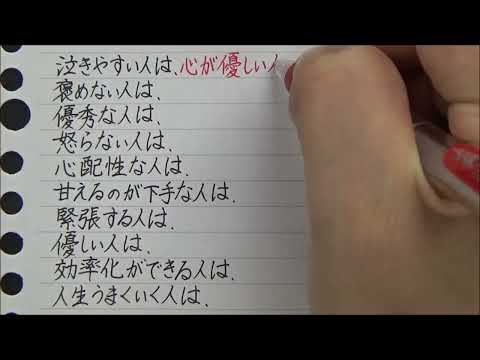 泣きやすい人は、心が優しい人
褒めない人は、
優秀な人は、
怒らない人は、
心配性な人は、
甘えるのが下手な人は、
緊張する人は、
優しい人は、
効率化ができる人は、
人生うまくいく人は、